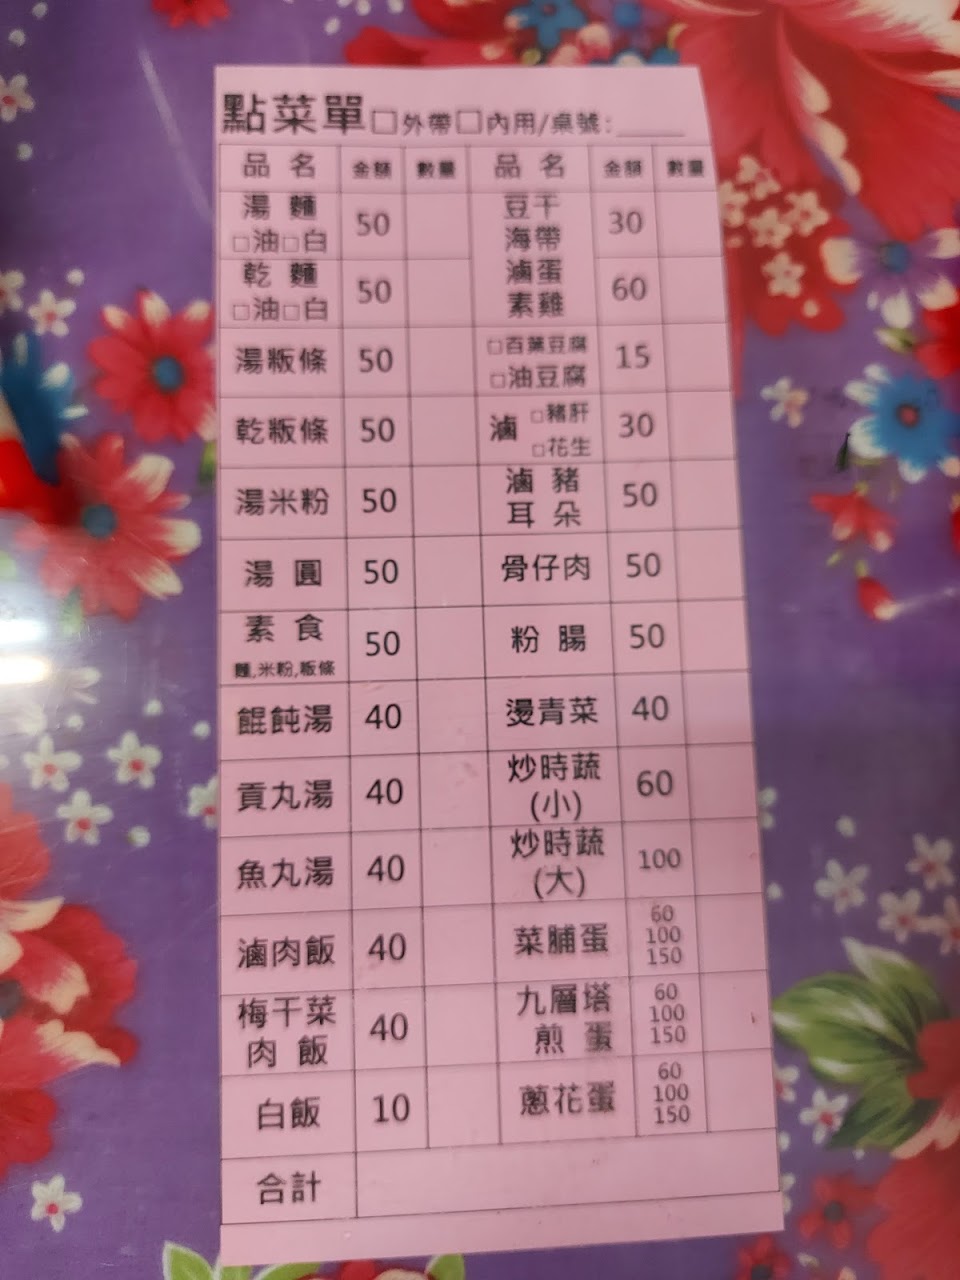 點菜單□外帶□內用/桌號:____
品名 金額 數量 品名 金額 數量
湯麵
□油□白
50
豆干
海帶
30
乾麵
□油□白
50
滷蛋
素雞
60
湯粄條 50
□百葉豆腐
□油豆腐
15
乾粄條 50
滷 □豬肝
□花生
30
湯米粉 50
滷豬
耳朵
50
湯圓 50 骨仔肉 50
素食
麵,米粉,粄條
50
粉腸 50
餛飩湯 40 燙青菜 40
貢丸湯 40
炒時蔬
(小)
60
魚丸湯 40
炒時蔬
(大)
100
滷肉飯 40 菜脯蛋
60
100
150
梅干菜
肉飯
40
九層塔
煎蛋
60
100
150
白飯 10 蔥花蛋
60
100
150
合計